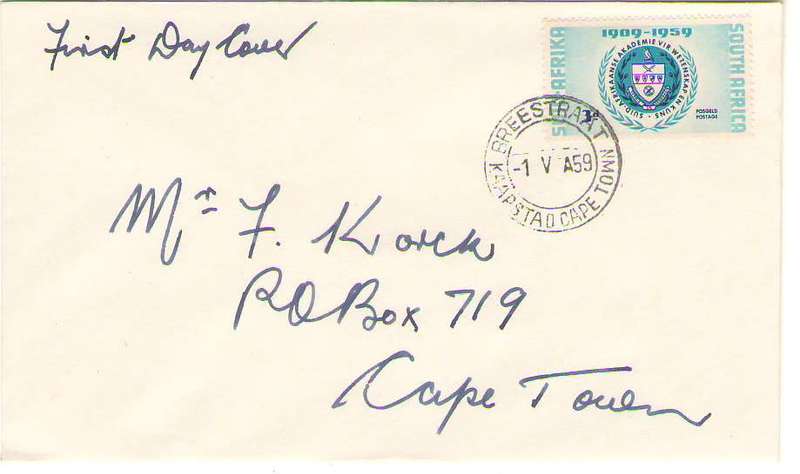 First Day Cover
1909-1959
SUID-AFRIKAANSE AKADEMIE VIR WETENSKAP EN KUNS
AFRIKA
SOUTH AFRICA
POSGELD
POSTAGE
3d
BREESTRAAT
-1 V A59
KAAPSTAD CAPE TOWN
Mr F. Korck
P.O Box 719
Cape Town